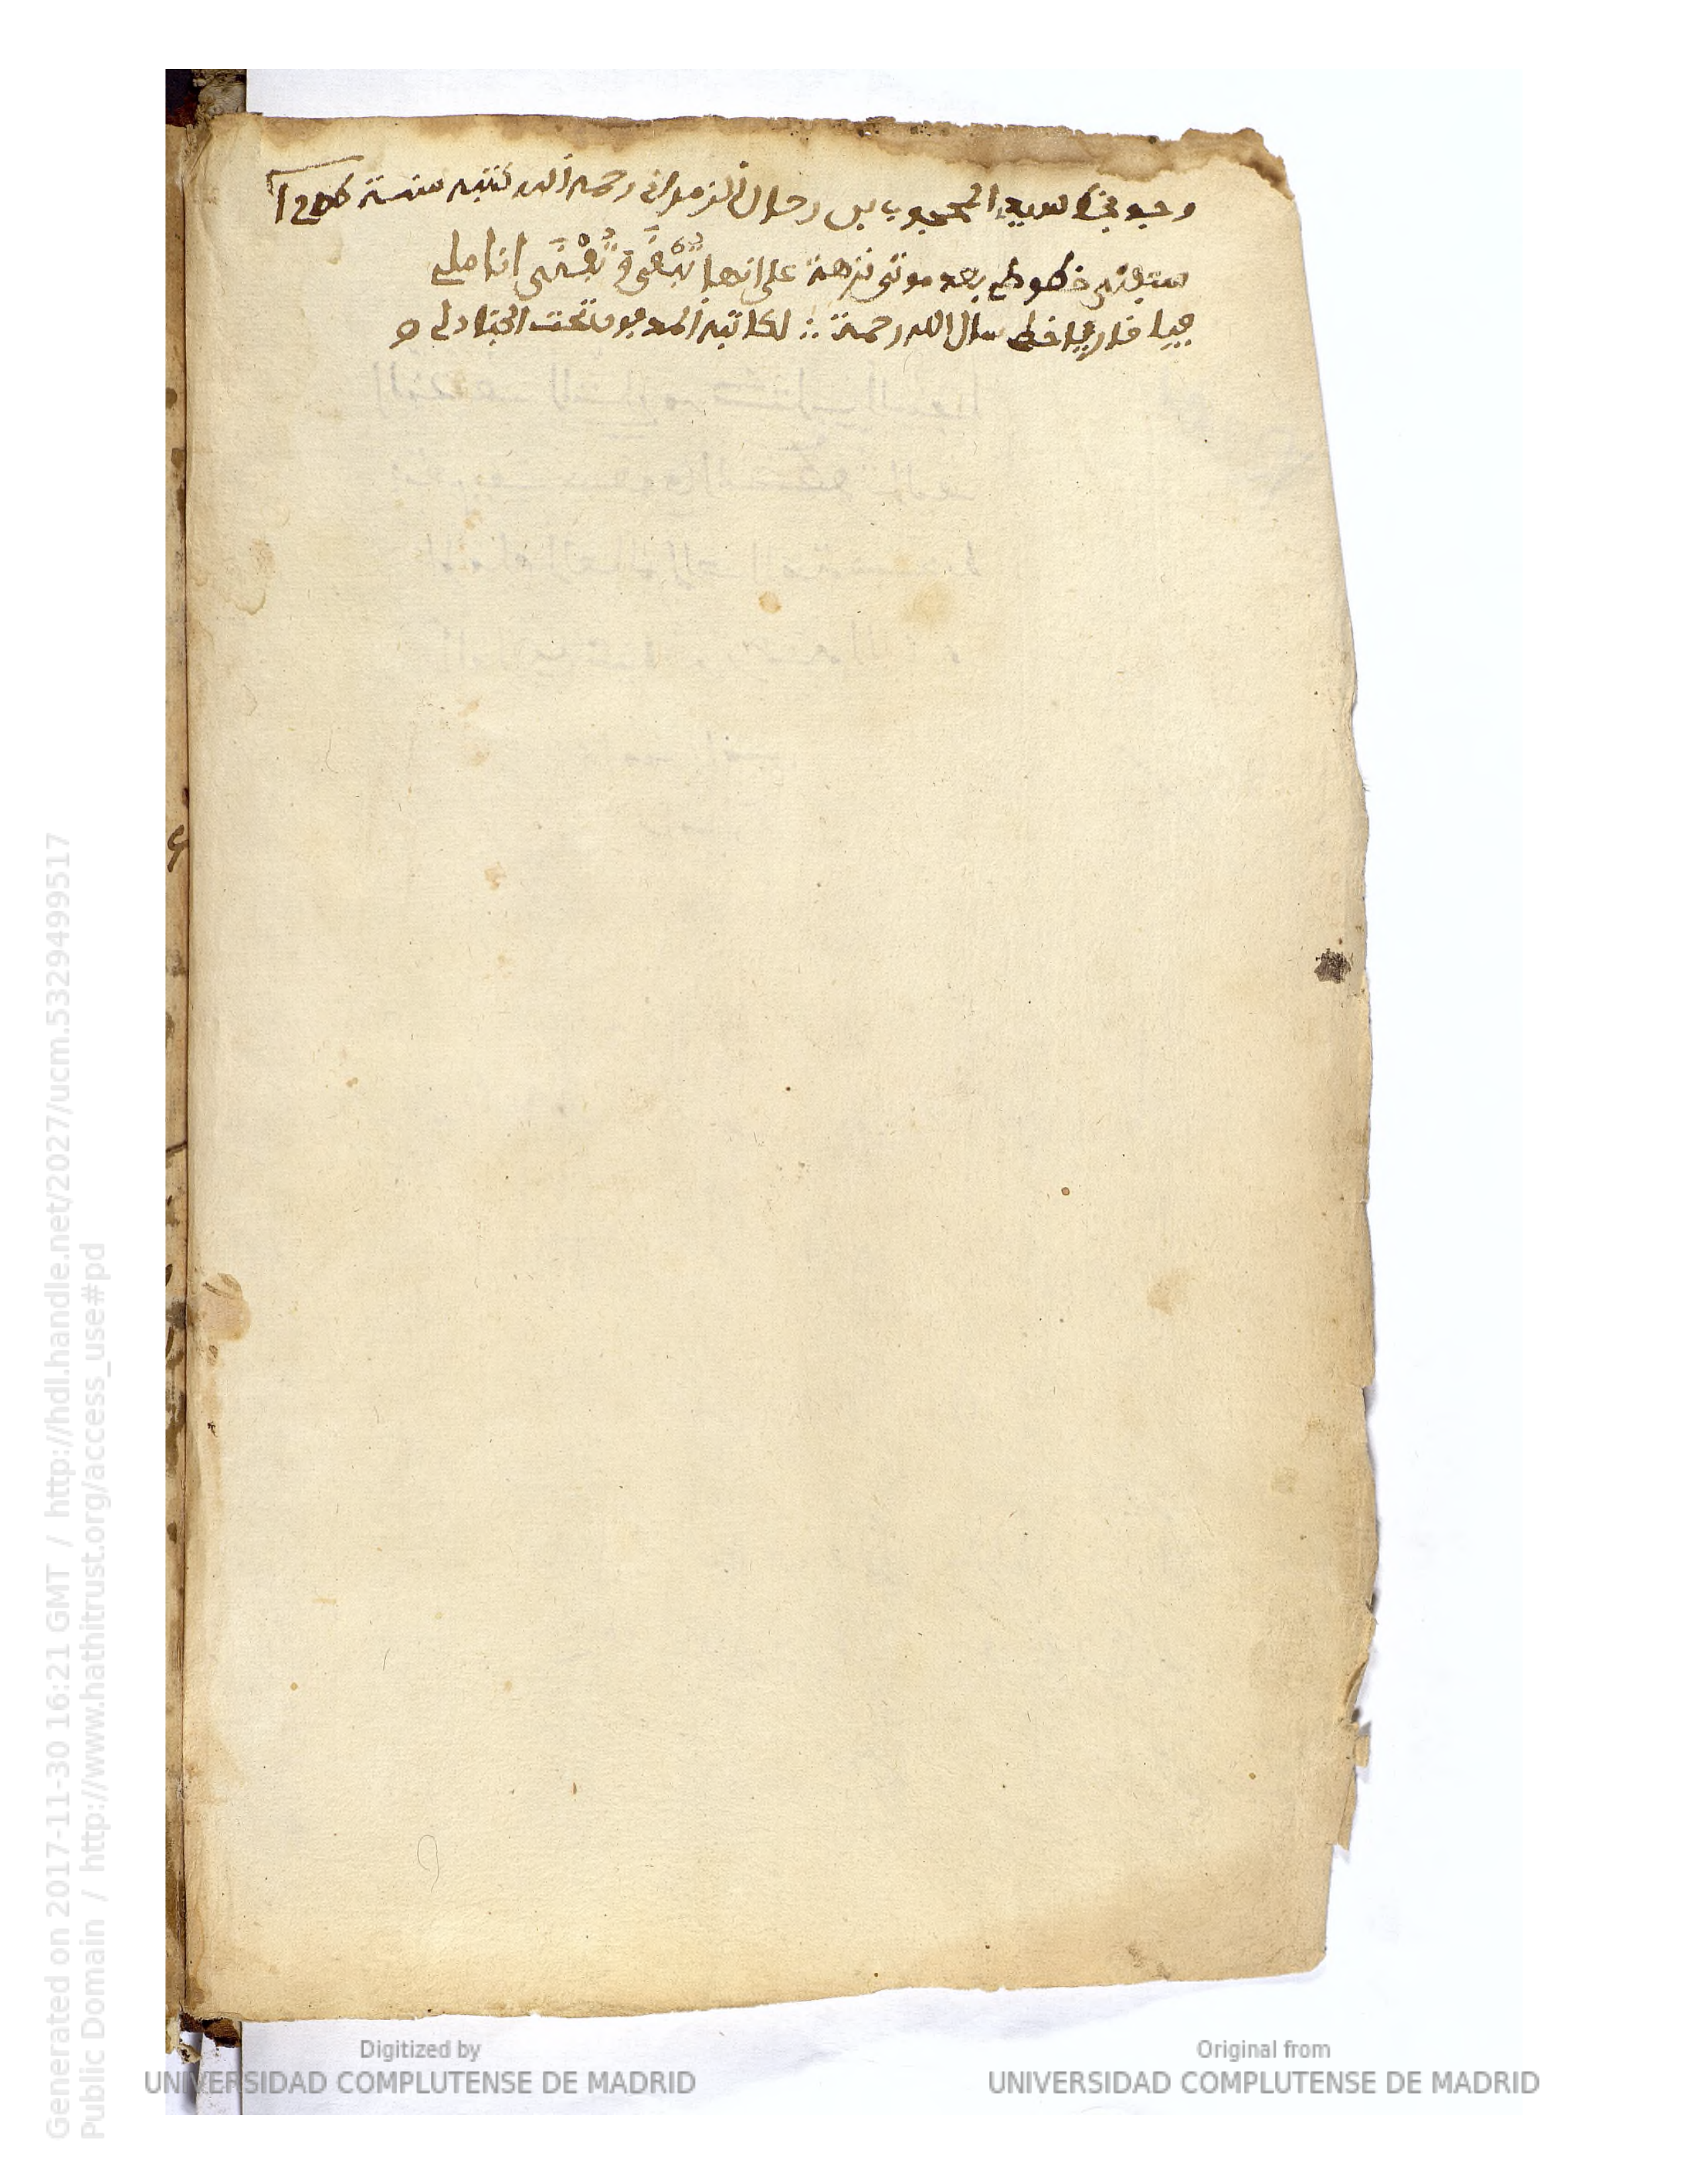 وجد بخط سيدي المحجوب بن رحال الزمراني رحمه الله كتبه سنة
ستبقى خطوطي بعد موتي نزهة على انها تبقى وتفنى اناملي
فيا قاريا خطي سال الله رحمة ∴ لكاتبه المدفون تحت الجنادل ه
Generated on 2017-11-30 16:21 GMT / http://hdl.handle.net/2027/ucm.5329499517
Public Domain / http://www.hathitrust.org/access_use#pd
Digitized by
UNIVERSIDAD COMPLUTENSE DE MADRID
Original from
UNIVERSIDAD COMPLUTENSE DE MADRID